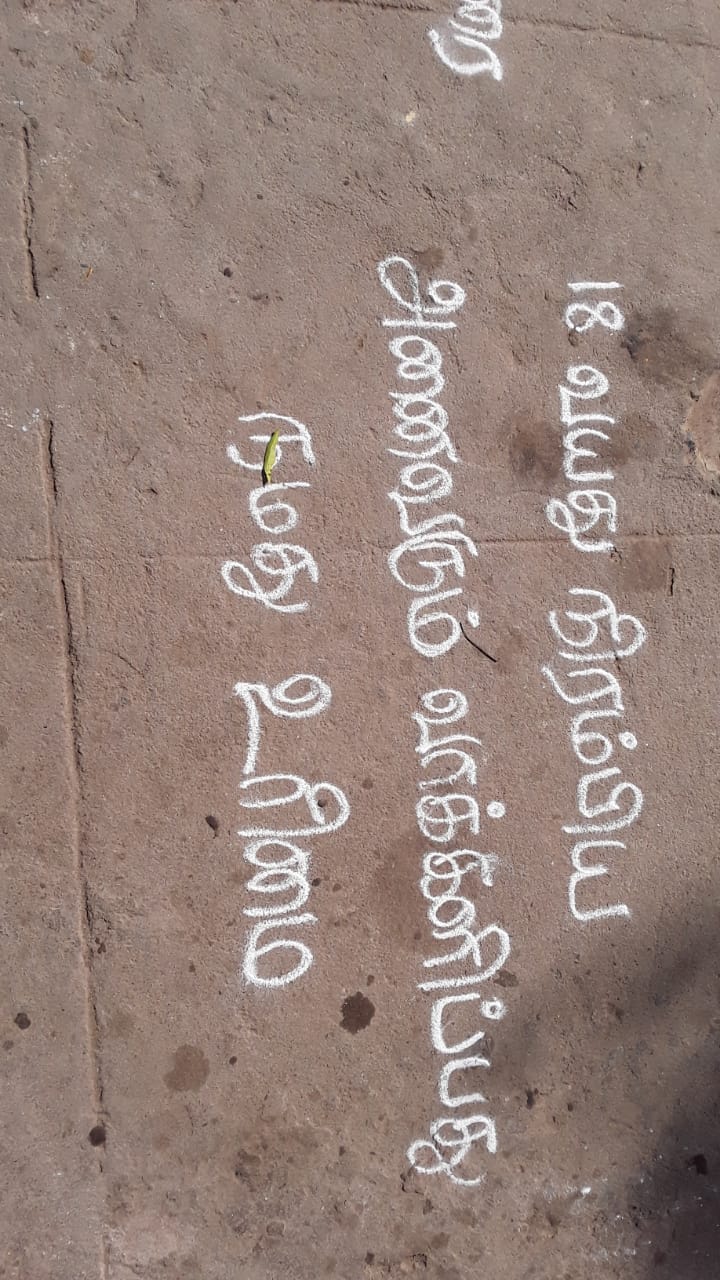 18 வயது நிரம்பிய
அனைவரும் வாக்களிப்பது
நமது உரிமை